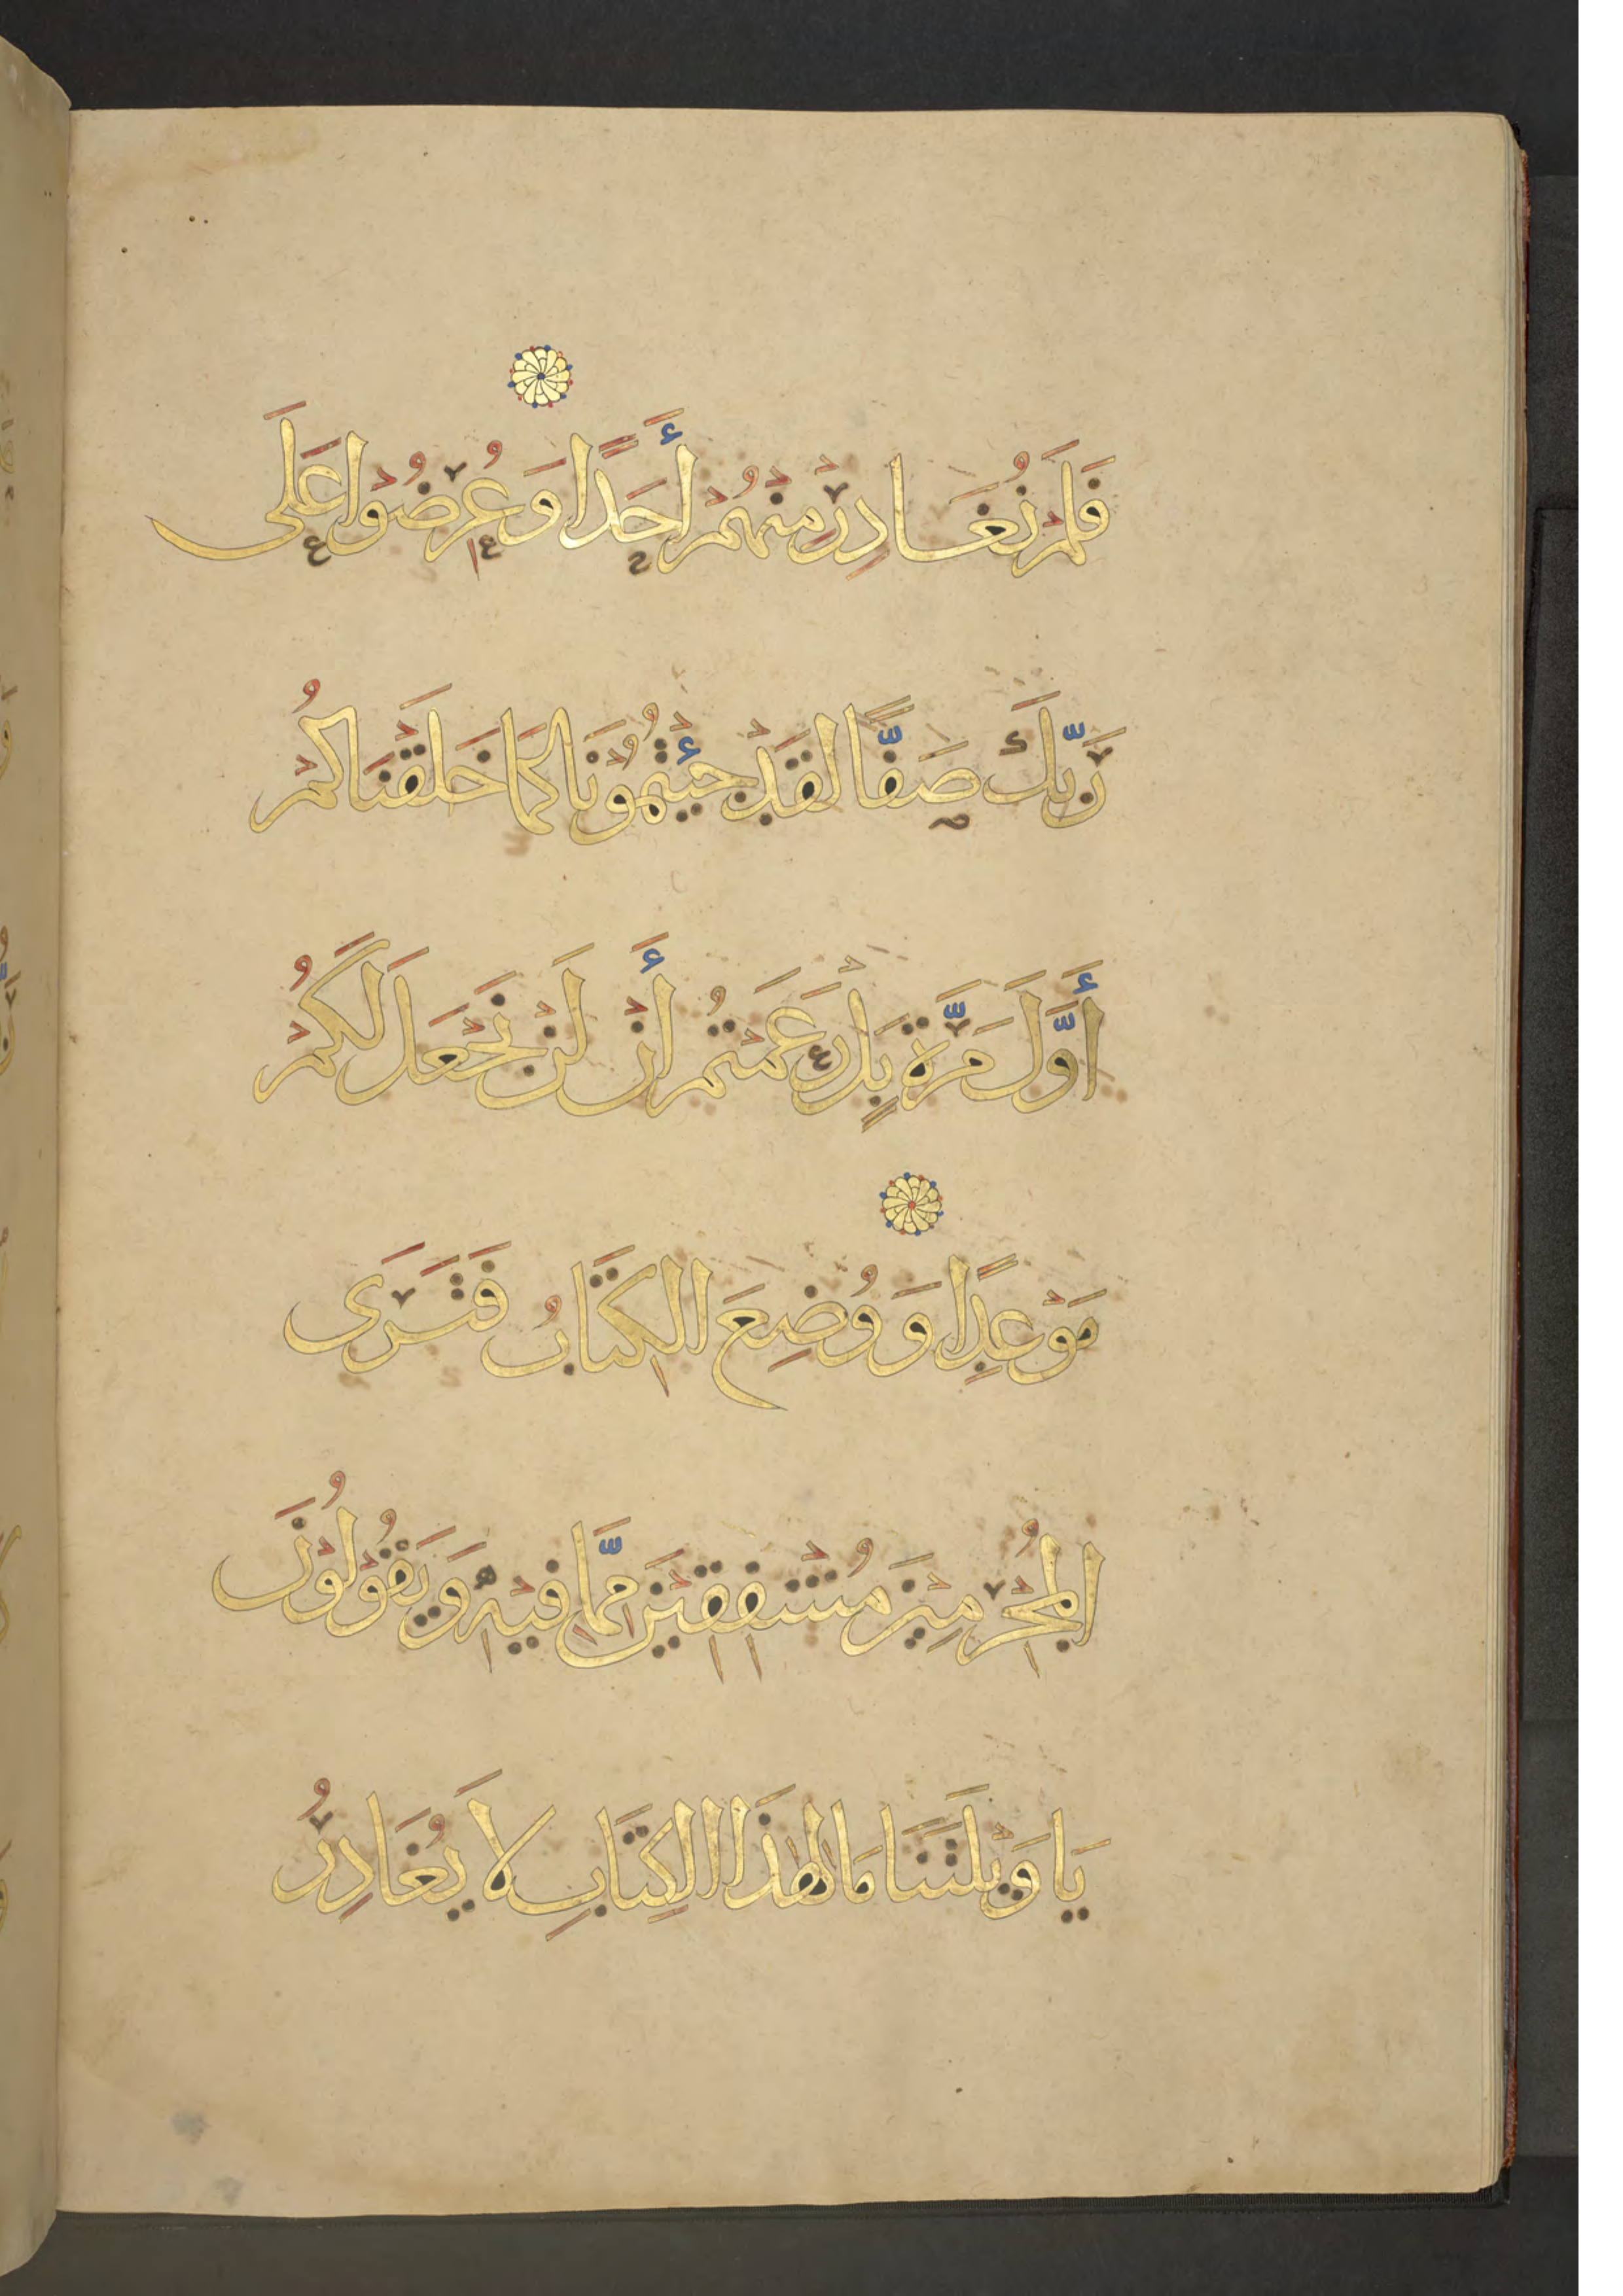 فَلَمْ نُغَادِرْ مِنْهُمْ أَحَدًا وَعُرِضُوْا عَلَى
رَبِّكَ صَفًّا لَقَدْ جِئْتُمُوْنَا كَمَا خَلَقْنَاكُمْ
أَوَّلَ مَرَّةٍ بَلْ زَعَمْتُمْ أَنْ لَنْ نَجْعَلَ لَكُمْ
مَوْعِدًا وَوُضِعَ الْكِتَابُ فَتَرَى
الْمُجْرِمِيْنَ مُشْفِقِيْنَ مِمَّا فِيْهِ وَيَقُوْلُوْنَ
يَا وَيْلَتَنَا مَا لِهَذَا الْكِتَابِ لَا يُغَادِرُ